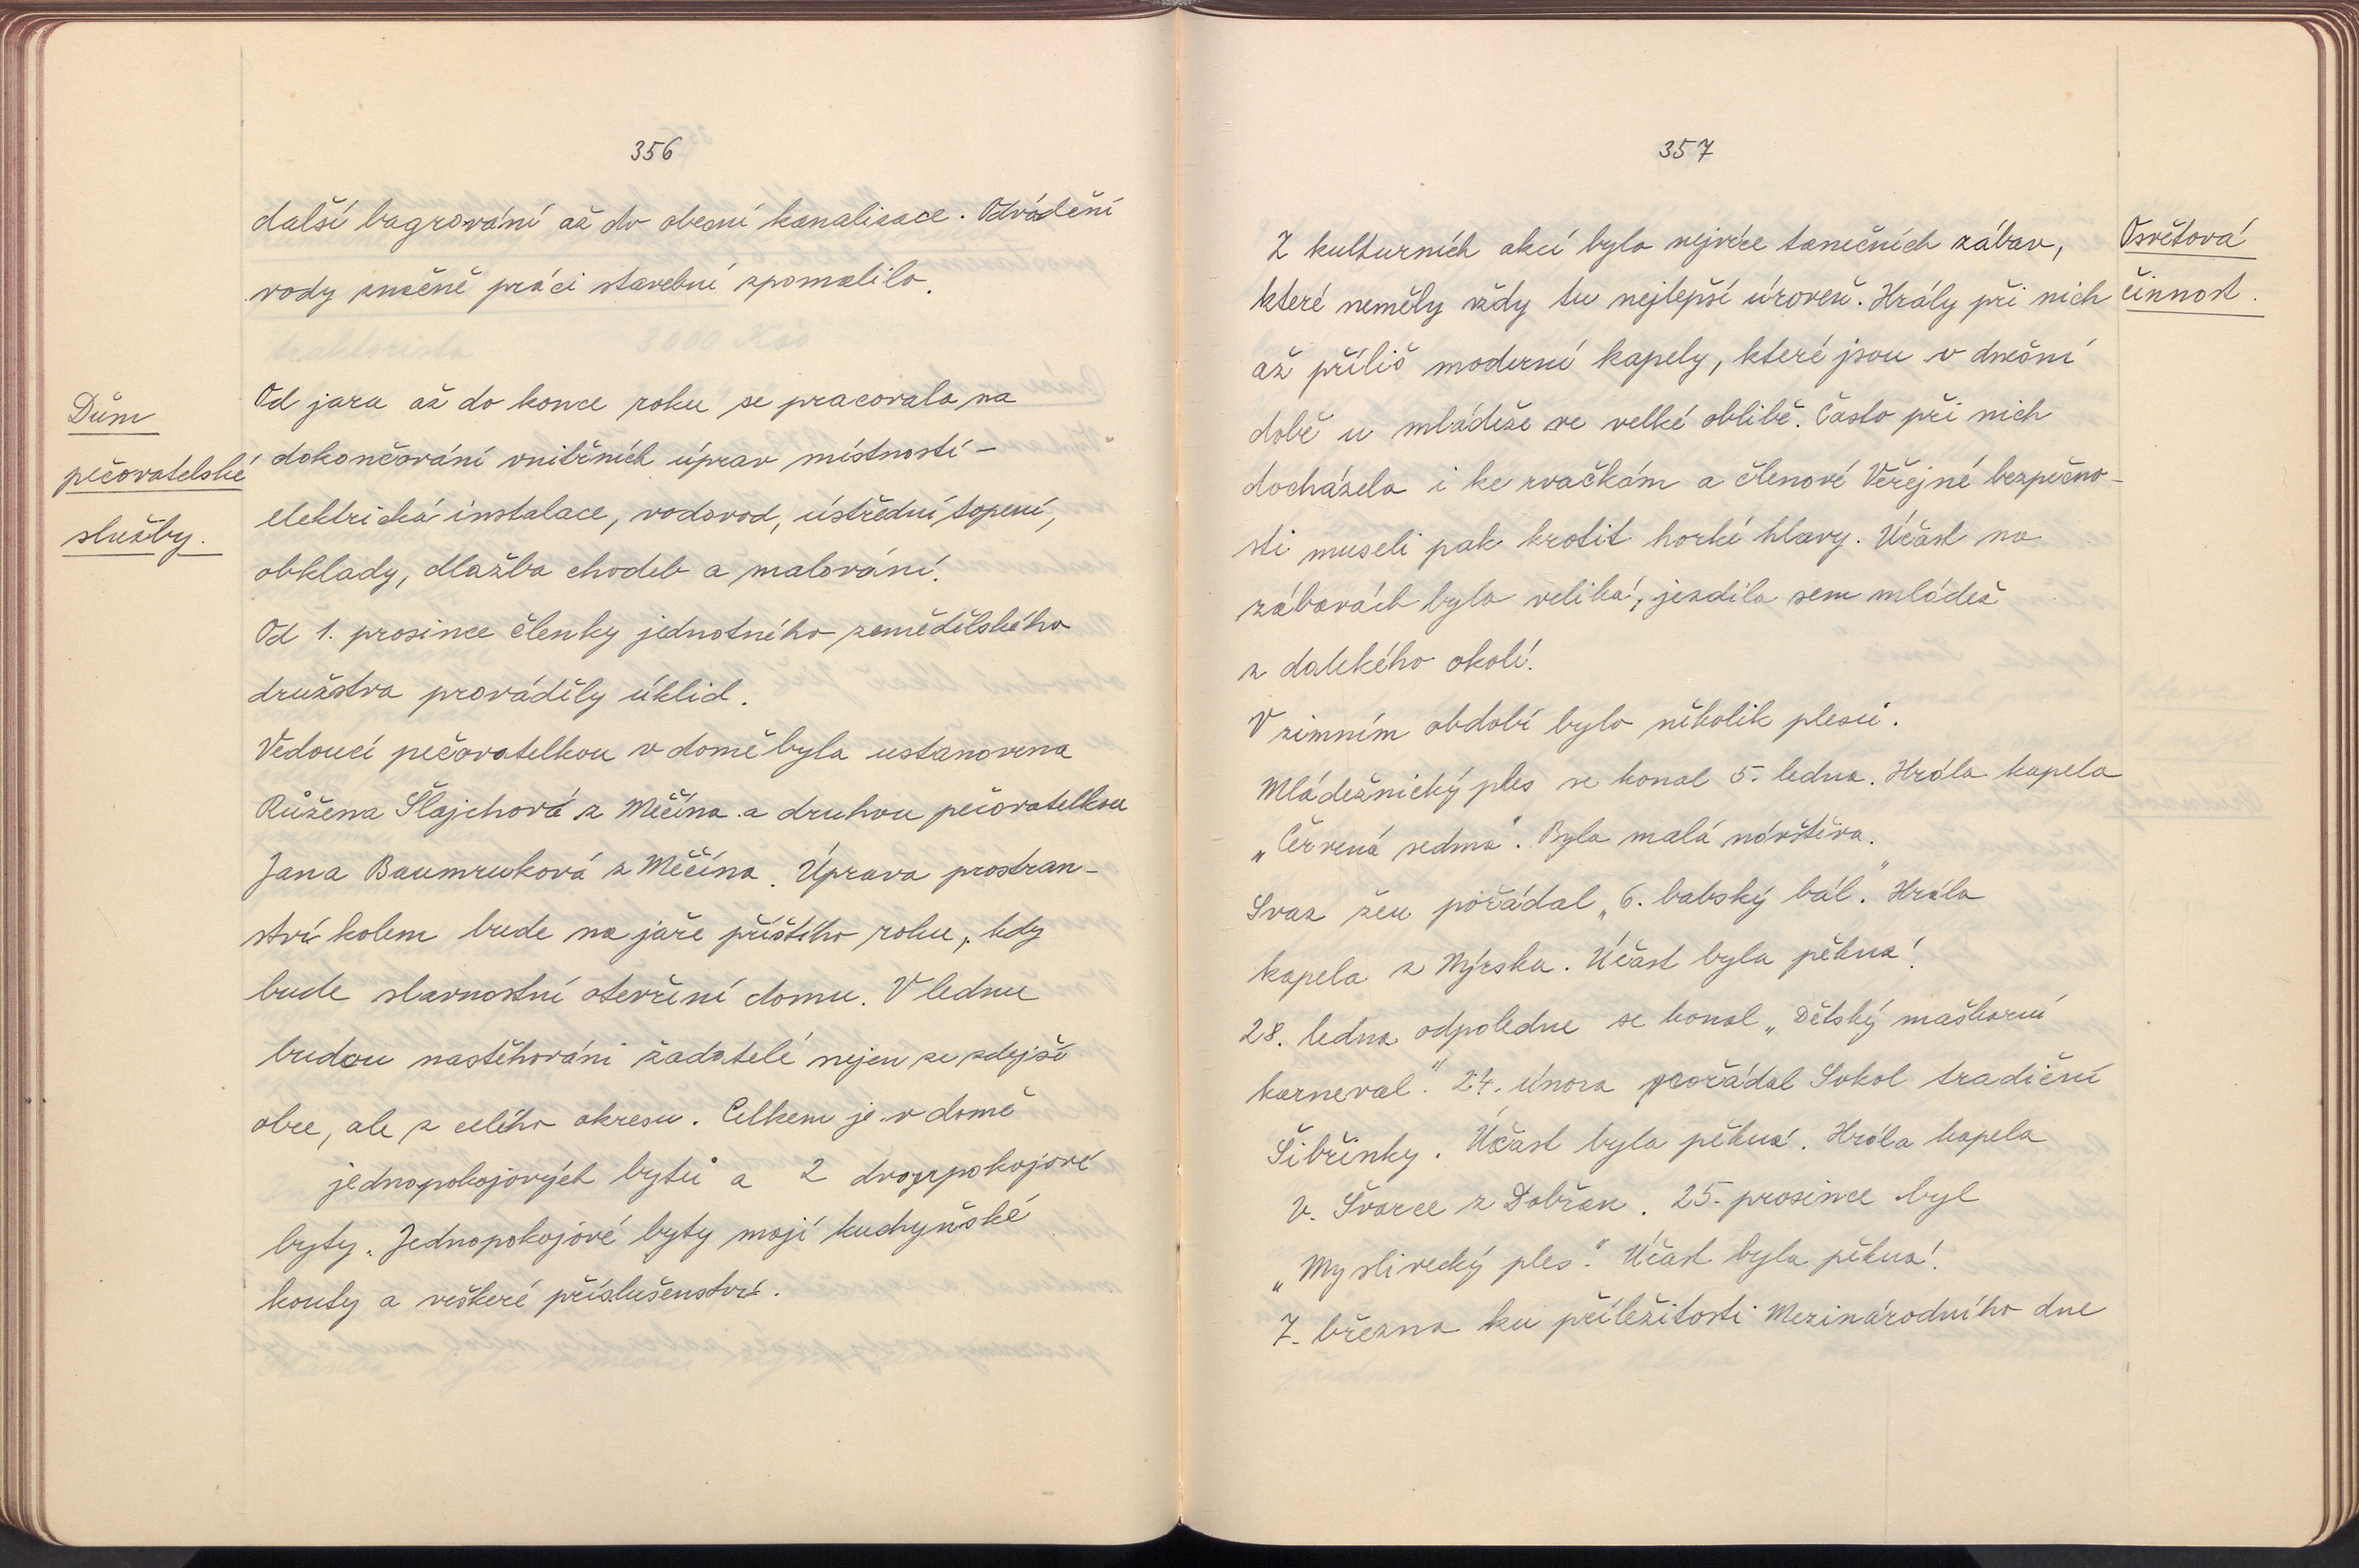 356
další bagrování až do obecní kanalisace. Odvádění
vody značně práci stavební zpomalilo.
Dům
pečovatelské
služby.
Od jara až do konce roku se pracovalo na
dokončování vnitřních úprav místností -
elektrická instalace, vodovod, ústřední topení,
obklady, dlažba chodeb a malování.
Od 1. prosince členky jednotného zemědělského
družstva prováděly úklid.
Vedoucí pečovatelkou v domě byla ustanovena
Růžena Šlajchová z Měčína a druhou pečovatelkou
Jana Baumruková z Měčína. Úprava prostran-
ství kolem bude na jaře příštího roku, kdy
bude slavnostní otevření domu. V lednu
budou nastěhováni žadatelé nejen ze zdejší
obce, ale z celého okresu. Celkem je v domě
jednopokojových bytů a 2 dvoupokojové
byty. Jednopokojové byty mají kuchyňské
kouty a veškeré příslušenství.
357
Osvětová
činnost.
Z kulturních akcí bylo nejvíce tanečních zábav,
které neměly vždy tu nejlepší úroveň. Hrály při nich
až příliš moderní kapely, které jsou v dnešní
době u mládeže ve velké oblibě. Často při nich
docházelo i ke rvačkám a členové Veřejné bezpečno-
sti museli pak krotit horké hlavy. Účast na
zábavách byla veliká, jezdila sem mládež
z dalekého okolí.
V zimním období bylo několik plesů.
Mládežnický ples se konal 5. ledna. Hrála kapela
„Červená sedma". Byla malá návštěva.
Svaz žen pořádal „6. babský bál." Hrála
kapela z Nýrska. Účast byla pěkná.
28. ledna odpoledne se konal „Dětský maškarní
karneval." 24. února pořádal Sokol tradiční
Šibřinky. Účast byla pěkná. Hrála kapela
V. Švarce z Dobřan. 25. prosince byl
„Myslivecký ples." Účast byla pěkná.
7. března ku příležitosti Mezinárodního dne